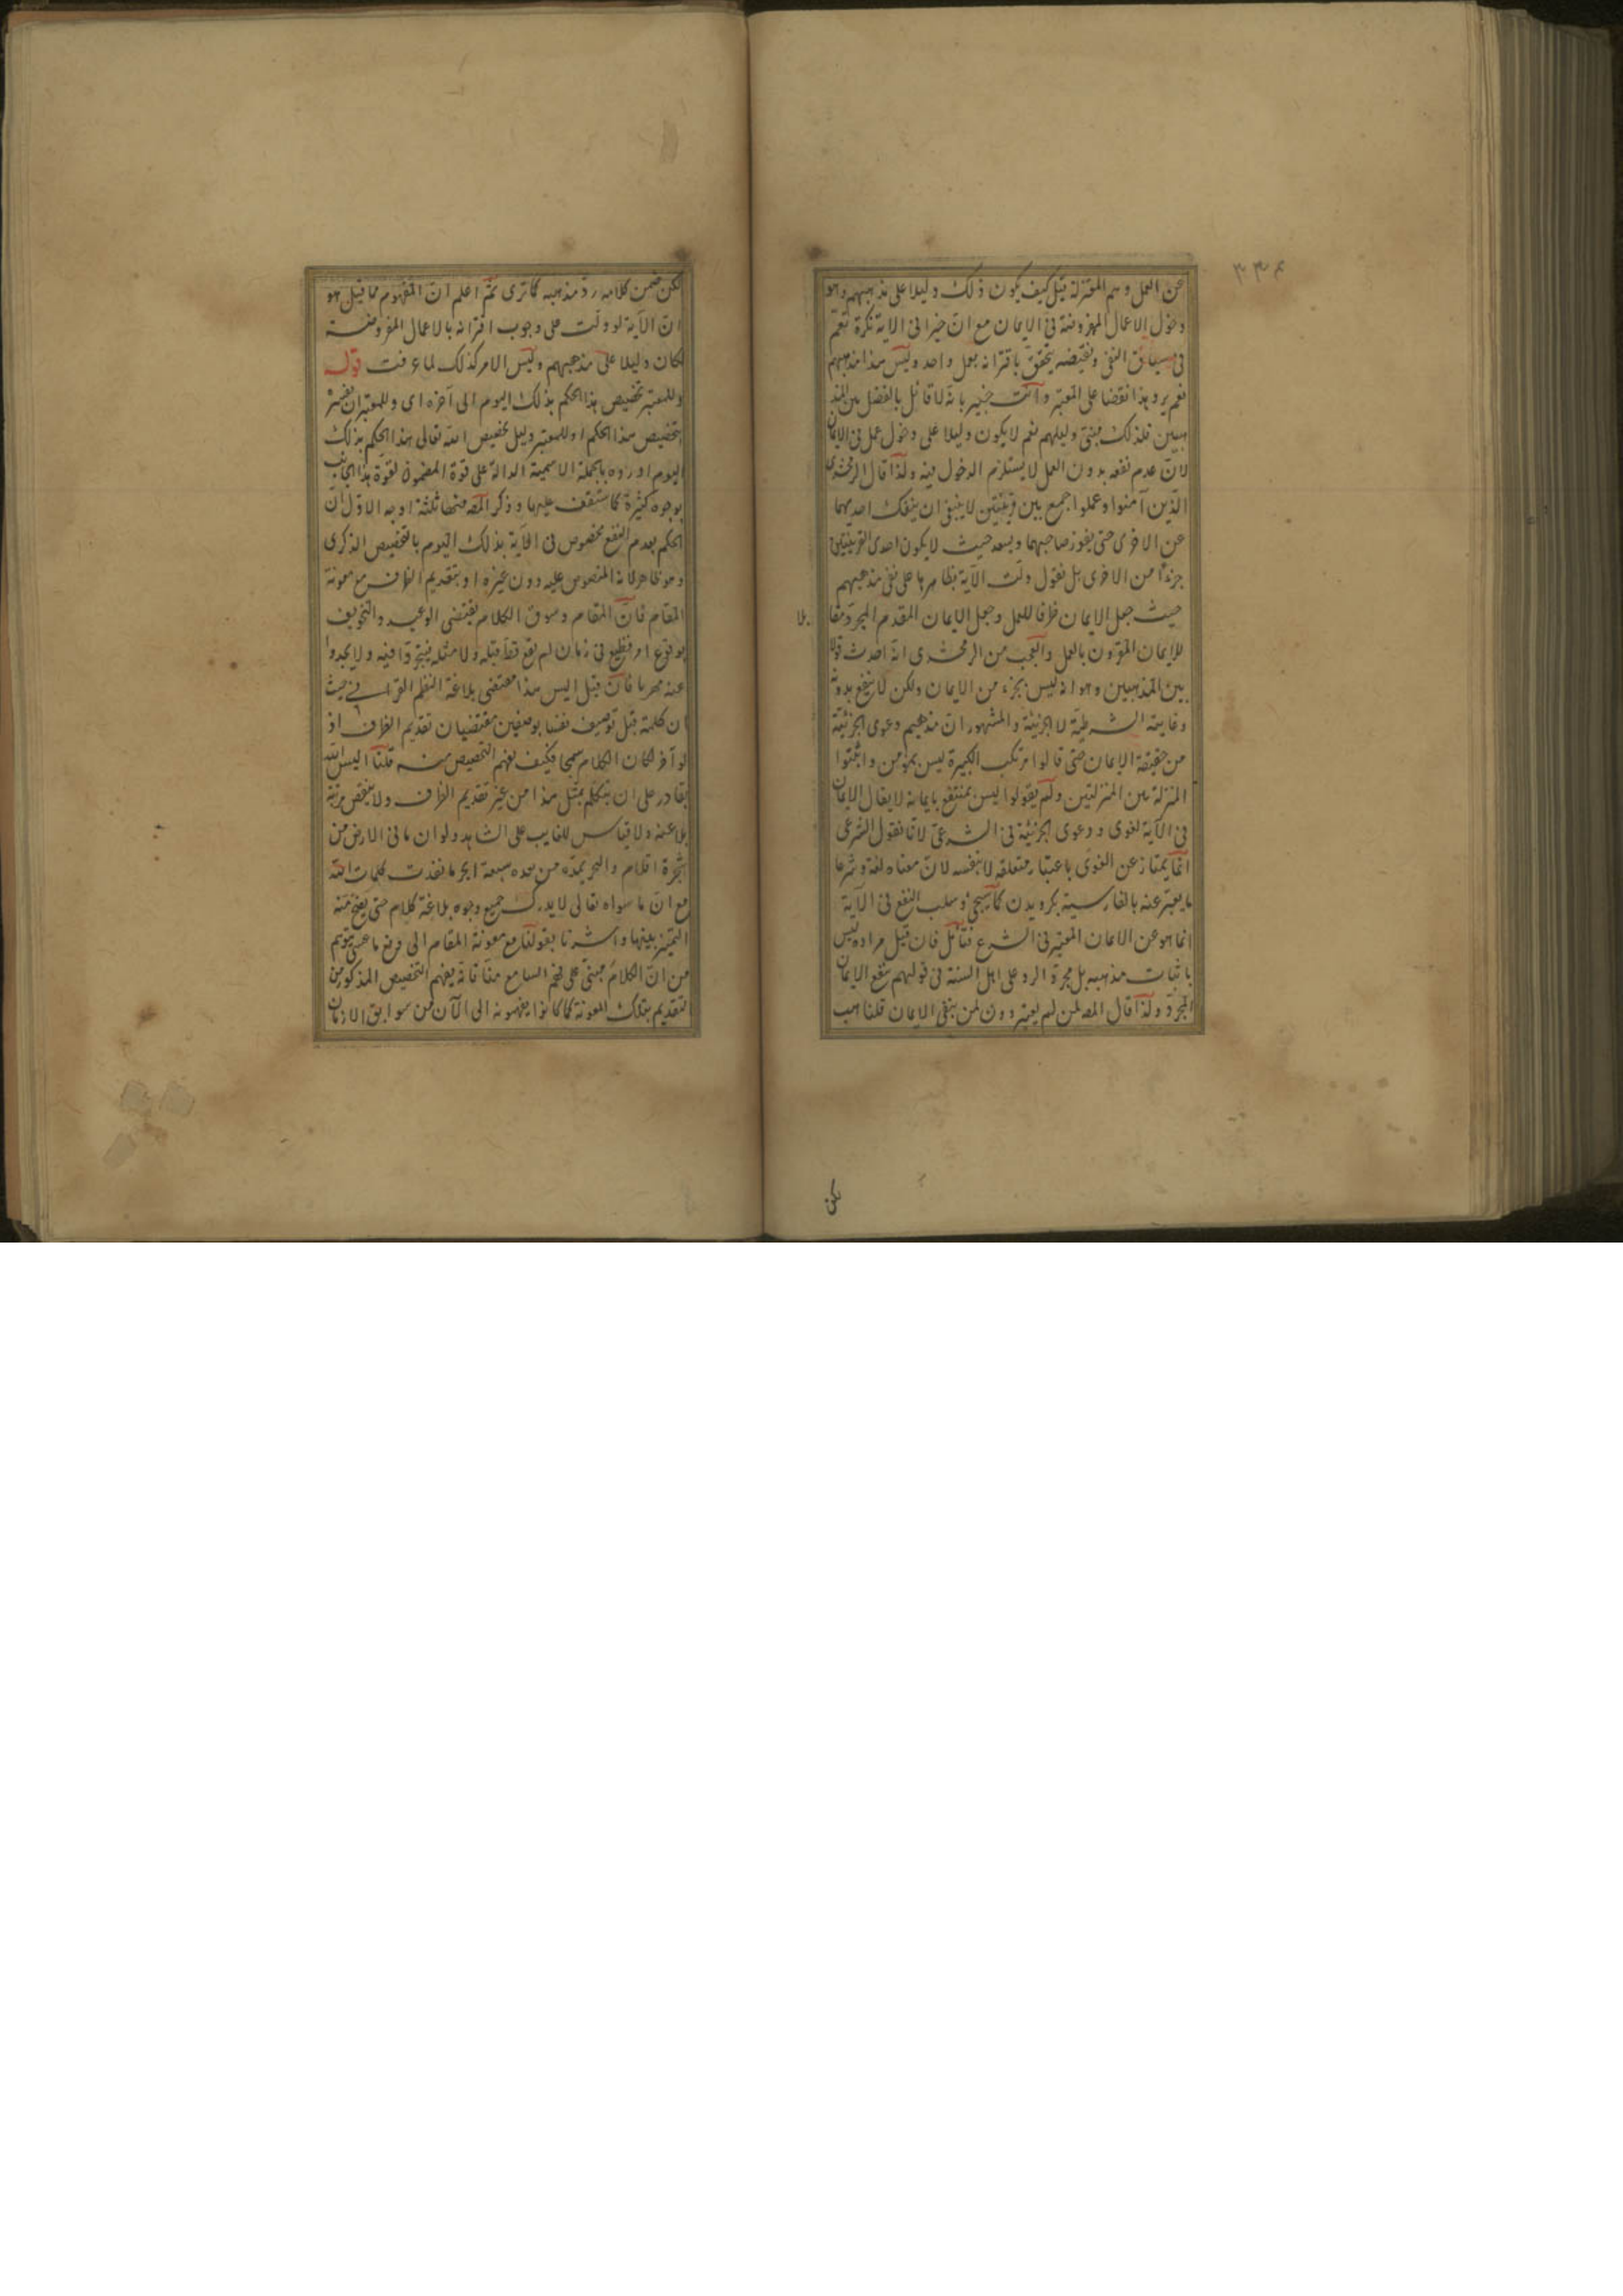 عن العمل وهم المعتزلة قيل كيف يكون ذلك دليلا على مذهبهم وهو
دخول الاعمال المفروضة فى الايمان مع ان خيرا فى الاية نكرة تعم
فى سياق النفى ونقيضه يتحقق باقترانه بعمل واحد وليس هذا مذهبهم
نعم يرد هذا نقضا على المعتبر وانت خبير بانه لا قائل بالفصل بين المذ
هبين فلذلك مبنى دليلهم نعم لا يكون دليلا على دخول عمل فى الايمان
لان عدم نفعه بدون العمل لا يستلزم الدخول فيه ولذا قال الزمخشرى
الذين آمنوا وعملوا جمع بين قرينتين لا ينبغى ان ينفك احديهما
عن الاخرى حتى يفوز صاحبهما ويسعد حيث لا يكون احدى القرينتين
جزءا من الاخرى بل نقول دلت الآية بظاهرها على نفى مذهبهم
حيث جعل الايمان ظرفا للعمل وجعل الايمان المقدم المجرد مقا
بلا
للايمان المقرون بالعمل والعجب من الزمخشرى انه احدث قولا
بين المذهبين وهو انه ليس بجزء من الايمان ولكن لا ينفع بدونه
وغايته الشرطية لا الجزئية والمشهور ان مذهبهم دعوى الجزئية
من حقيقة الايمان حتى قالوا مرتكب الكبيرة ليس بمؤمن واثبتوا
المنزلة بين المنزلتين ولم يقولوا ليس بمنتفع بايمانه لا يقال الايمان
فى الآية لغوى ودعوى الجزئية فى الشرعى لانا نقول الشرعى
انما يمتاز عن اللغوى باعتبار متعلقه لا بنفسه لان معناه لغة وشرعا
ما يعبر عنه بالفارسية بكرويدن كما سيجئ وسلب النفع فى الآية
انما هو عن الايمان المعتبر فى الشرع فتأمل فان قيل مراده ليس
باثبات مذهبه بل مجرد الرد على اهل السنة فى قولهم ينفع الايمان
المجرد ولذا قال المص لمن لم يعتبر دون لمن ينفى الايمان قلنا هب
لكن
لكن ضمن كلامه رد مذهبه كما ترى ثم اعلم ان المفهوم مما قيل هو
ان الآية لو دلت على وجوب اقترانه بالاعمال المفروضة
لكان دليلا على مذهبهم وليس الامر كذلك لما عرفت قوله
وللمعتبر تخصيص هذا الحكم بذلك اليوم الى آخره اى وللمعتبر ان يفسر
بتخصيص هذا الحكم او للمعتبر دليل تخصيص الله تعالى هذا الحكم بذلك
اليوم اورده بالجملة الاسمية الدالة على قوة المضمون لقوة هذا الجانب
بوجوه كثيرة كما ستقف عليها وذكر المص منها ثلثة اوجه الاول ان
الحكم بعدم النفع مخصوص فى الآية بذلك اليوم بالتخصيص الذكرى
وهو ظاهر لانه المنصوص عليه دون غيره او بتقديم الظرف مع معونة
المقام فان المقام وسوق الكلام يقتضى الوعيد والتخويف
بوقوع امر فظيع فى زمان لم يقع قط قبله ولا مثله
عنه مهربا فان قيل اليس هذا مقتضى بلاغة النظم القرآنى حيث
ان كلمة قبل توصيف نفسا بوصفين مقتضيان تقديم الظرف اذ
لو آخر لكان الكلام سمجا فكيف يفهم التخصيص منه قلنا اليس الله
بقادر على ان يتكلم بمثل هذا من غير تقديم الظرف ولا ينقص مرتبة
بلاغته ولا قياس للغايب على الشاهد ولو ان ما فى الارض من
شجرة اقلام والبحر يمده من بعده سبعة ابحر ما نفدت كلمات الله
مع ان ما سواه تعالى لا يدرك جميع وجوه بلاغة كلام حتى يصح منه
التميز بينها واشرنا بقولنا مع معونة المقام الى دفع ما عسى يتوهم
من ان الكلام مبنى على فهم السامع منا فانه يفهم التخصيص المذكور من
التقديم بتلك المعونة كما كانوا يفهمونه الى الآن من سوابق الازمان